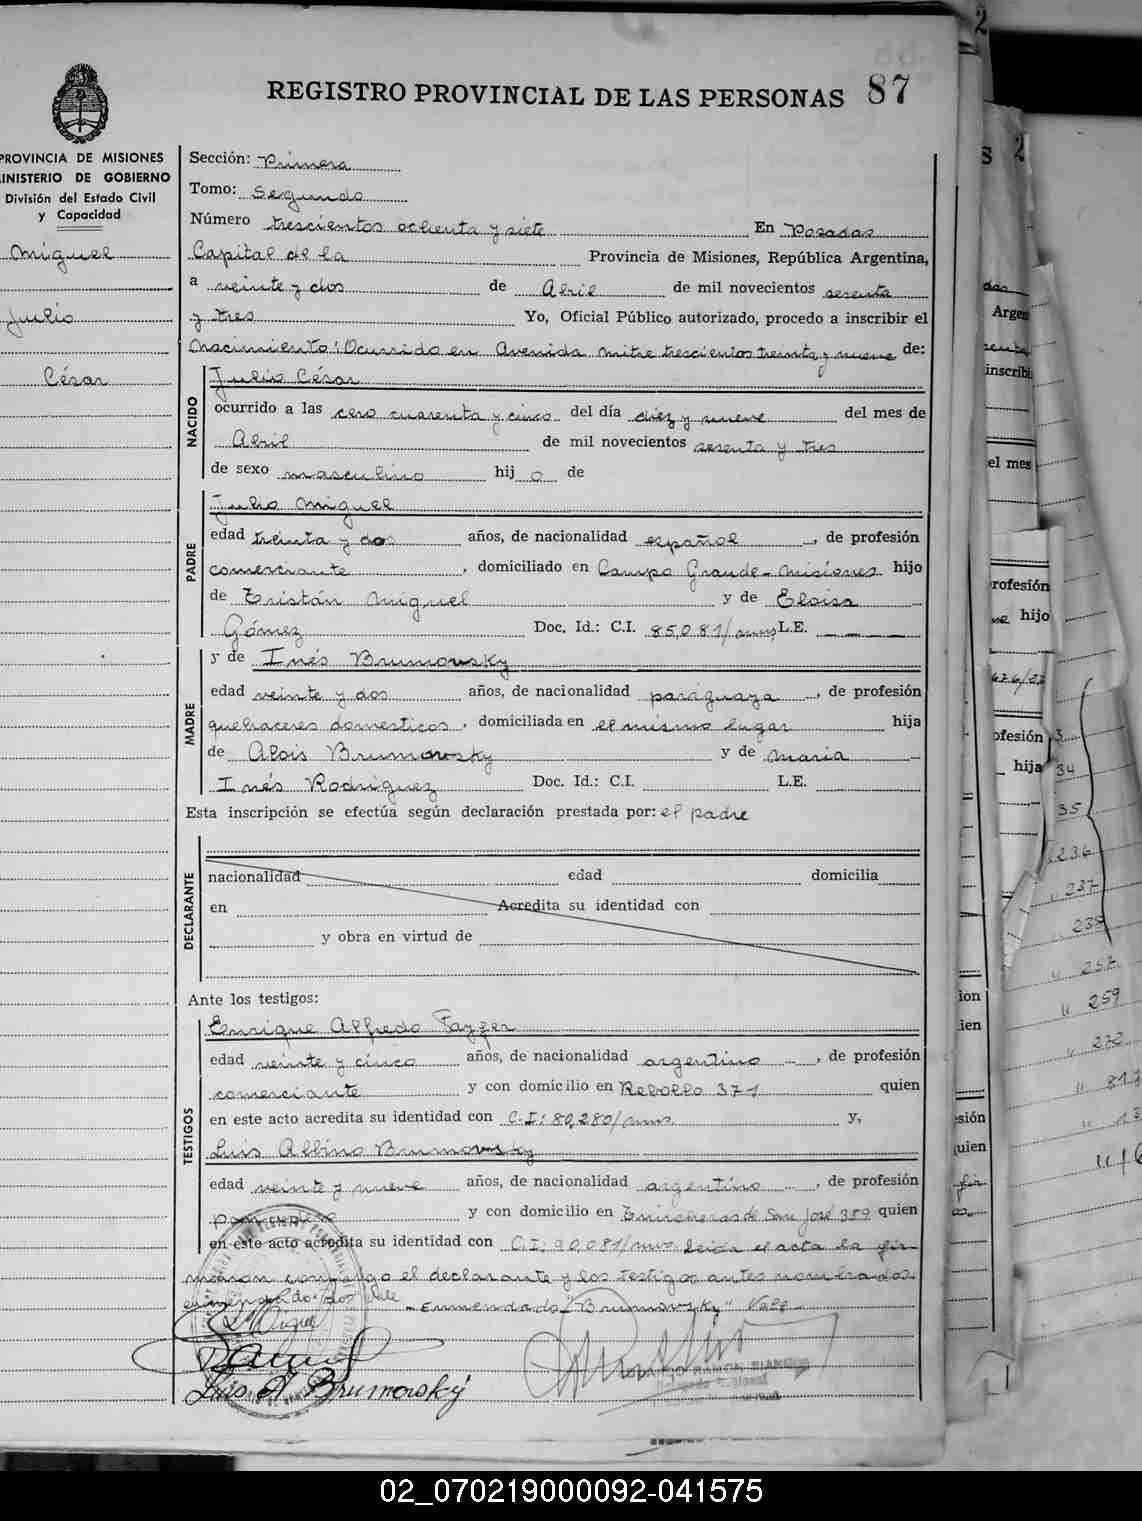 REGISTRO PROVINCIAL DE LAS PERSONAS 87
PROVINCIA DE MISIONES
MINISTERIO DE GOBIERNO
División del Estado Civil
y Capacidad
Miguel
Julio
César
Sección: Primera
Tomo: Segundo
Número trescientos ochenta y siete En Posadas
Capital de la Provincia de Misiones, República Argentina,
a veinte y dos de Abril de mil novecientos sesenta
y tres Yo, Oficial Público autorizado, procedo a inscribir el
Nacimiento: Ocurrido en Avenida Mitre trescientos treinta y nueve de:
NACIDO
Julio César
ocurrido a las cero cuarenta y cinco del día diez y nueve del mes de
Abril de mil novecientos sesenta y tres
de sexo masculino hij o de
PADRE
Julio Miguel
edad treinta y dos años, de nacionalidad español, de profesión
comerciante, domiciliado en Campo Grande - Misiones hijo
de Tristán Miguel y de Eloisa
Gómez Doc. Id.: C.I. 85,081/mnes L.E. _ _ _ _
MADRE
y de Inés Brumovsky
edad veinte y dos años, de nacionalidad paraguaya, de profesión
quehaceres domesticos, domiciliada en el mismo lugar hija
de Alois Brumovsky y de Maria
Inés Rodriguez Doc. Id.: C.I. L.E.
Esta inscripción se efectúa según declaración prestada por: el padre
DECLARANTE
nacionalidad edad domicilia
en Acredita su identidad con
y obra en virtud de
Ante los testigos:
TESTIGOS
Enrique Alfredo Fayzer
edad veinte y cinco años, de nacionalidad argentino, de profesión
comerciante y con domicilio en Rebollo 371 quien
en este acto acredita su identidad con C.I: 80,280/mnes. y,
Luis Albino Brumovsky
edad veinte y nueve años, de nacionalidad argentino, de profesión
y con domicilio en Trincheras de San José 359 quien
en este acto acredita su identidad con C.I: 90,081/mnes. Leida el acta la fir
maron conmigo el declarante y los testigos antes nombrados
enmendado: dos: Vale - Enmendado "Brumovsky" Vale -
Miguel
Luis A. Brumovský
RAMON
02_070219000092-041575